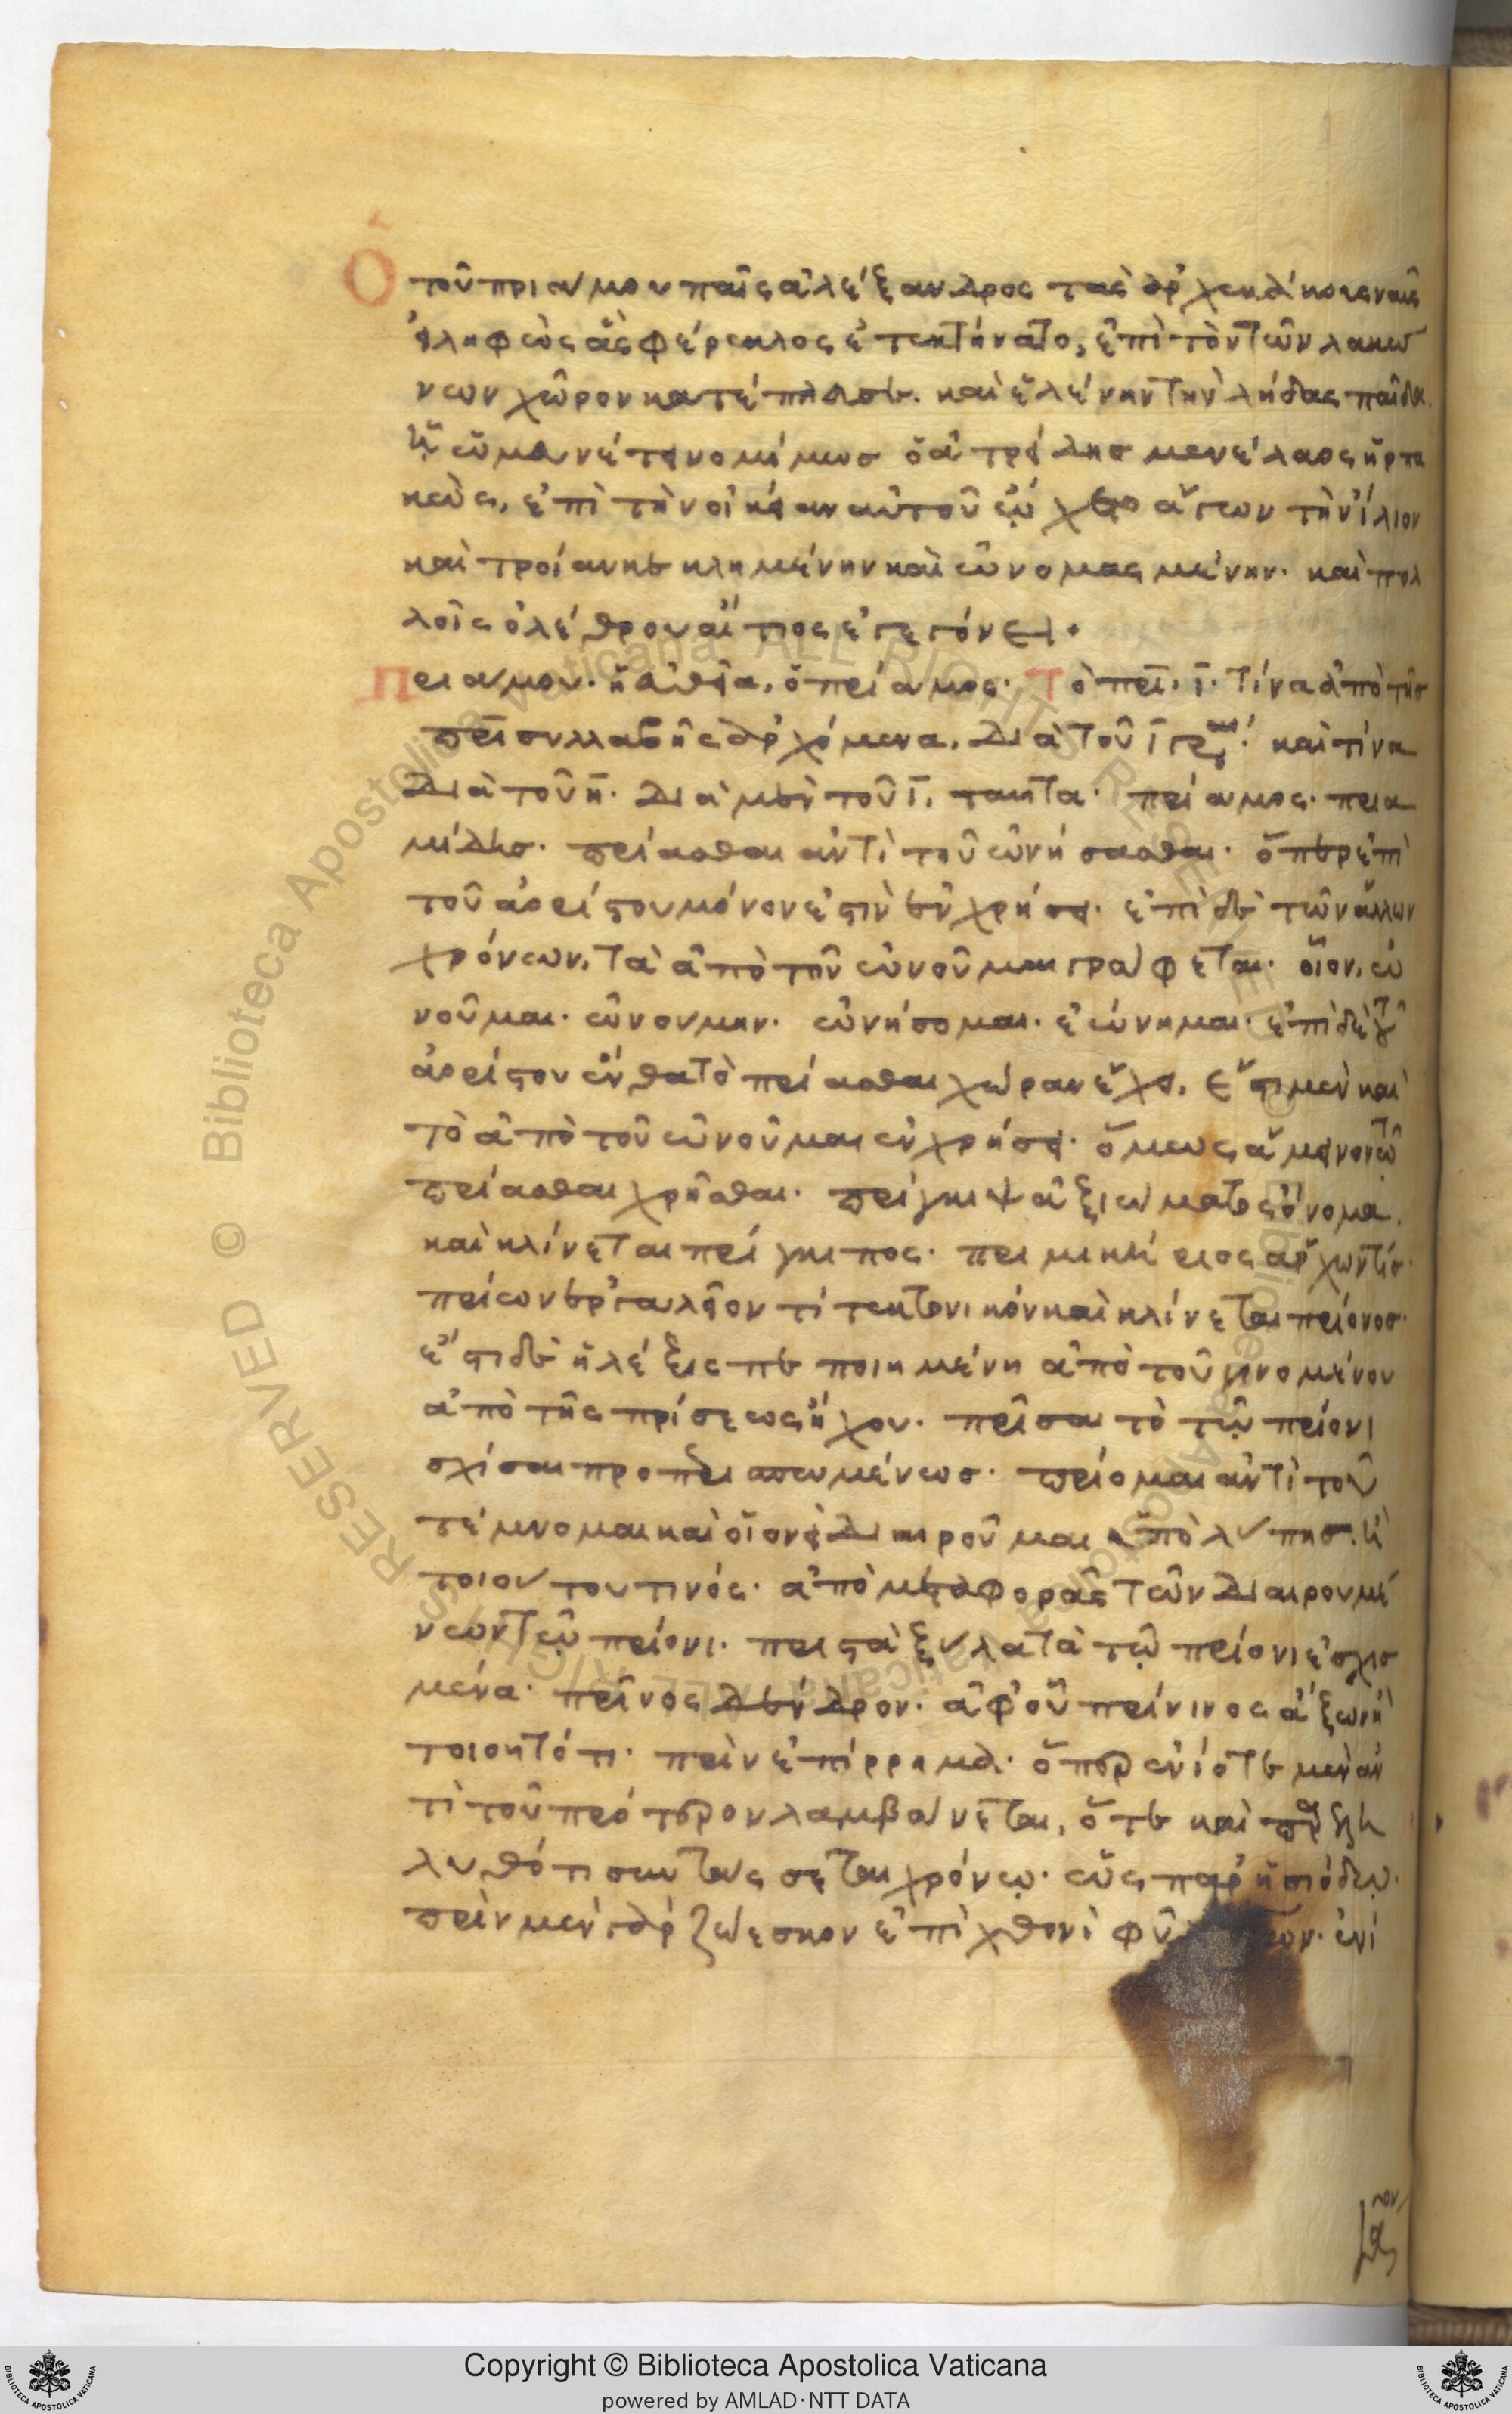 Ὁ τοῦ πριάμου παῖς ἀλέξανδρος τὰς ἀρχεκάκους ναῦς
εἰληφὼς ἃς φέρεκλος ἐτεκτήνατο, ἐπὶ τὸν τῶν λακώ
νων χῶρον κατέπλευσε. καὶ ἑλένην τὴν λήδας παῖδα.
ᾗ εὐμενέτη νομίμως ὁ ἀτρείδης μενέλαος ἥρμο
κὼς, ἐπὶ τὴν οἰκείαν αὐτοῦ ᾤχετο ἄγων τὴν ἴλιον
καὶ τροίαν κεκλημένην καὶ ὠνομασμένην. καὶ πολ
λοῖς ὀλέθρου αἴτιος ἐγεγόνει.
Πριάμου. ἡ εὐθεῖα, ὁ πρίαμος. Τὸ πρι. ι. τίνα ἀπὸ τῆς
πρι συλλαβῆς ἀρχόμενα, διὰ τοῦ ι γράφεται. καὶ τίνα
διὰ τοῦ η. διὰ μὲν τοῦ ι, ταῦτα. πρίαμος. πρια
μίδης. πρίασθαι ἀντὶ τοῦ ὠνήσασθαι. ὅπερ ἐπὶ
τοῦ ἀορίστου μόνον ἐστὶν ἐν χρήσει. ἐπὶ δὲ τῶν ἄλλων
χρόνων, τὰ ἀπὸ τοῦ ὠνοῦμαι γράφεται. οἷον, ὠ
νοῦμαι. ὠνούμην. ὠνήσομαι. ἐώνημαι. ἐπὶ δὲ τοῦ
ἀορίστου ἔνθα τὸ πρίασθαι χώραν ἔχει, ἔστι μὲν καὶ
τὸ ἀπὸ τοῦ ὠνοῦμαι ἐν χρήσει. ὅμως ἄμεινον τῶ
πρίασθαι χρῆσθαι. πρίγκιψ ἀξιώματος ὄνομα.
καὶ κλίνεται πρίγκιπος. πριμικήριος ἄρχων τίς.
πρίων ἐργαλεῖον τί τεκτονικὸν καὶ κλίνεται πρίονος.
ἔστι δὲ ἡ λέξις πεποιημένη ἀπὸ τοῦ γινομένου
ἀπὸ τῆς πρίσεως ἤχου. πρῖσαι τὸ τῷ πρίονι
σχίσαι προπερισπωμένως. πρίομαι ἀντὶ τοῦ
τέμνομαι καὶ οἱονεὶ διαιροῦμαι ἀπὸ λύπης. ἢ
τοιούτου τινός. ἀπὸ μεταφορᾶς τῶν διαιρουμέ
νων τῷ πρίονι. πριστὰ ξύλα τὰ τῷ πρίονι ἐσχισ
μένα. πρῖνος δένδρον. ἀφ' οὗ πρίνινος ἄξων ἢ
τοιοῦτό τι. πρὶν ἐπίρρημα. ὅπερ ἐνίοτε μὲν ἀν
τὶ τοῦ πρότερον λαμβάνεται, ὅτε καὶ παρελη
λυθότι συντάσσεται χρόνῳ. ὡς παρ' ἡσιόδῳ.
πρὶν μὲν γὰρ ζώεσκον ἐπὶ χθονὶ φῦλ' ων. ἐνί
Copyright © Biblioteca Apostolica Vaticana
powered by AMLAD·NTT DATA